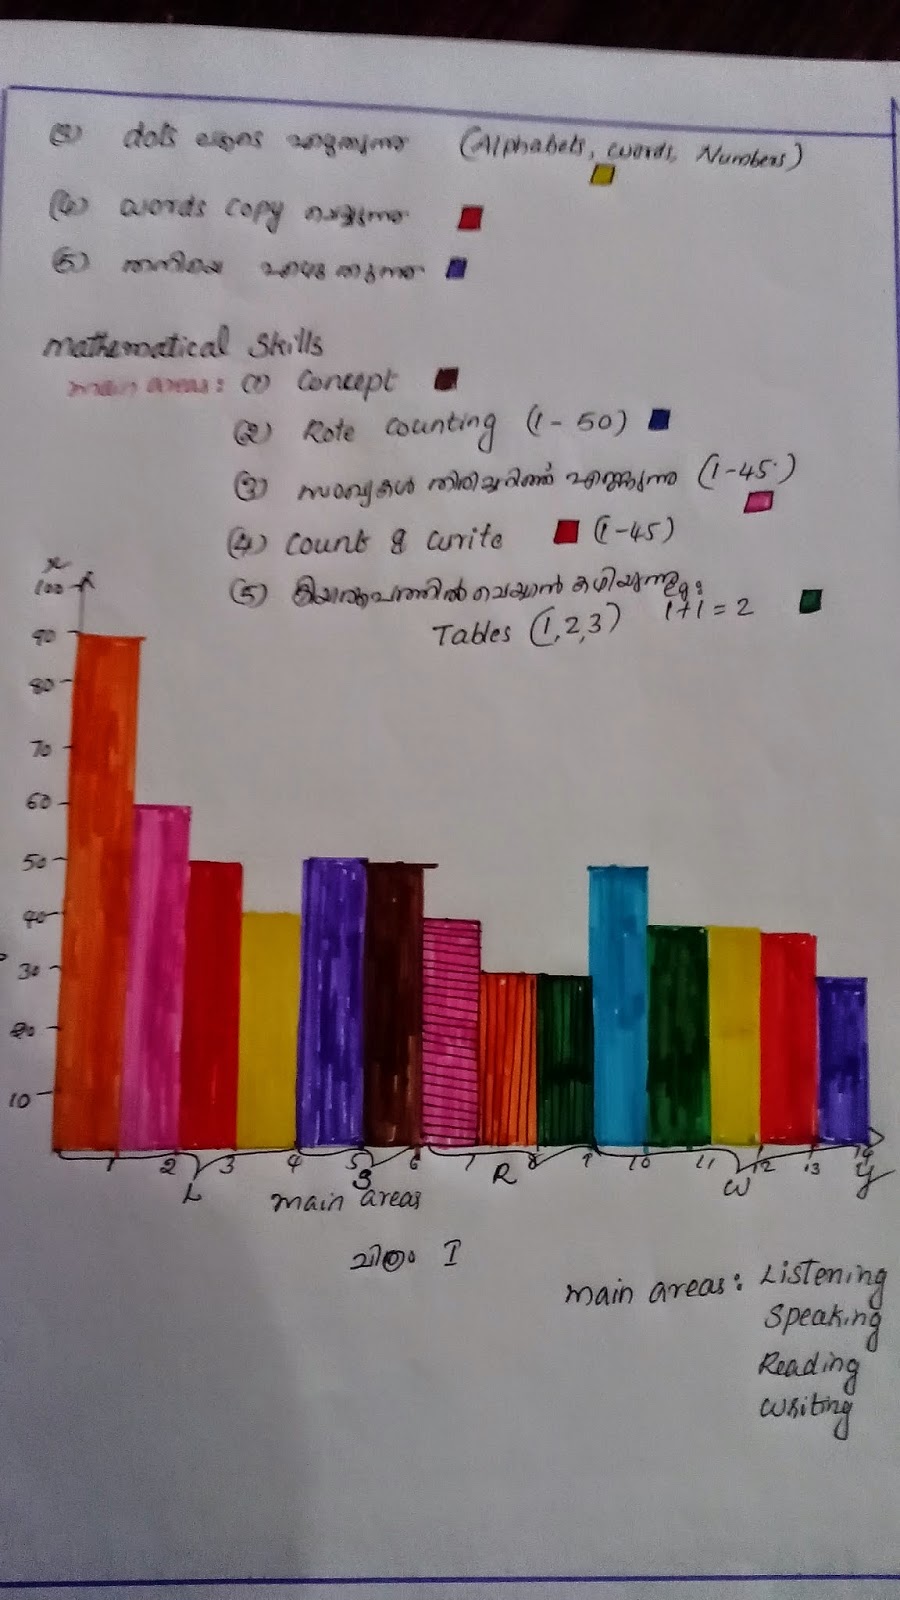 (3) dots ലൂടെ എഴുതുന്നു (Alphabets, words, Numbers)
(4) words copy ചെയ്യുന്നു
(5) തനിയെ എഴുതുന്നു
Mathematical Skills
main areas: (1) Concept
(2) Rote Counting (1 - 50)
(3) സംഖ്യകൾ തിരിച്ചറിഞ്ഞ് എണ്ണുന്നു (1-45)
(4) Count & write (1-45)
(5) ക്രിയാരൂപത്തിൽ ചെയ്യാൻ കഴിയുന്നു eg:
Tables (1,2,3) 1+1=2
x
100
90
80
70
60
50
40
30
20
10
1 2 3 4 5 6 7 8 9 10 11 12 13 14
L S R W y
main areas
ചിത്രം I
main areas: Listening
Speaking
Reading
Writing